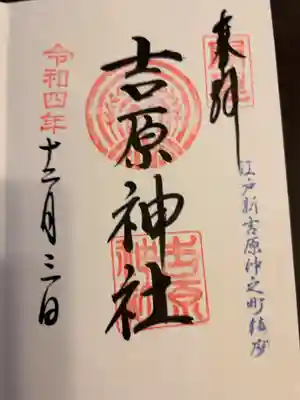 奉拝
江戸新吉原仲之町
吉原神社
吉原神社
令和四年十二月三日